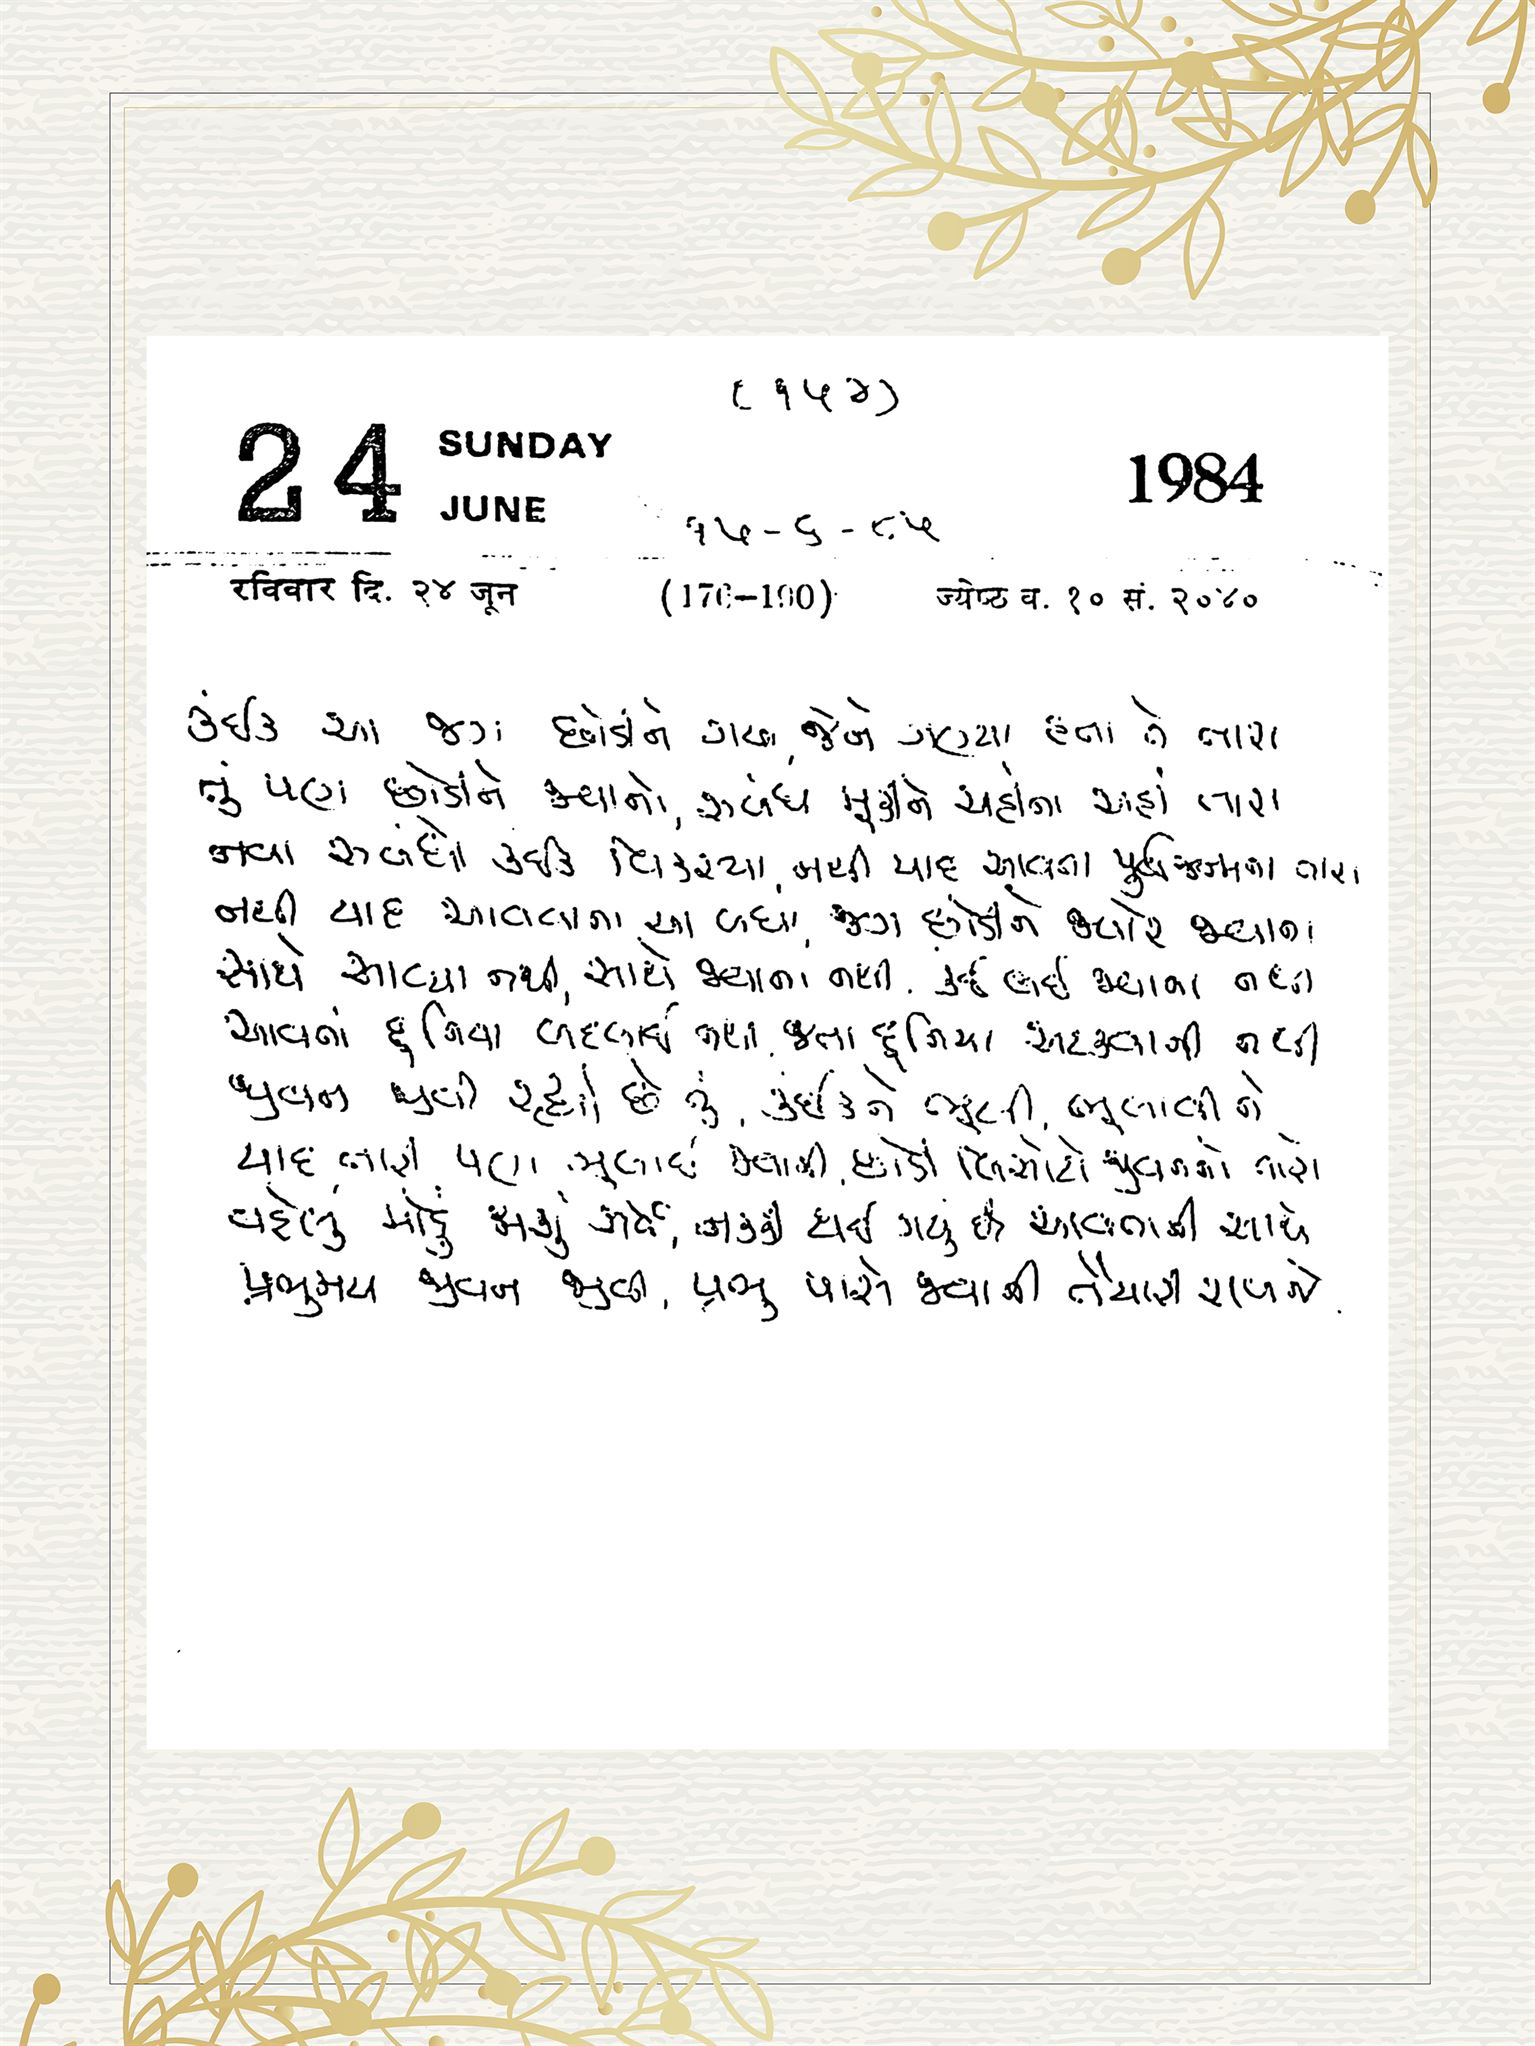 (૧૫૨)
24 SUNDAY
JUNE
1984
૧૫-૬-૮૫
रविवार दि. २४ जून (176-190) ज्येष्ठ व. १० सं. २०४०
કંઈક આ જગ છોડીને ગયા, જેને ગણ્યા હતા તેં તારા
તું પણ છોડીને જવાનો, સંબંધ મૂકીને અહીંના અહીં તારા
નવા સંબંધો કંઈક વિકસ્યા, નથી યાદ આવતા પુર્વજન્મના તારા
નથી યાદ આવવાના આ બધા, જગ છોડીને જ્યારે જવાના
સાથે આવ્યા નથી, સાથે જવાના નથી. કંઈ લઈ જવાના નથી
આવતાં દુનિયા બદલાઈ નથી. જતા દુનિયા અટકવાની નથી
જીવન જીવી રહ્યો છે તું, કંઈકને ભૂલી, ભૂલાવીને
યાદ તારી પણ ભુલાઈ જવાની, છોડી લિસોટો જીવનનો તારો
વહેલું મોડું જવું પડશે, નક્કી થઈ ગયું છે આવતાની સાથે
પ્રભુમય જીવન જીવી, પ્રભુ પાસે જવાની તૈયારી રાખજે.